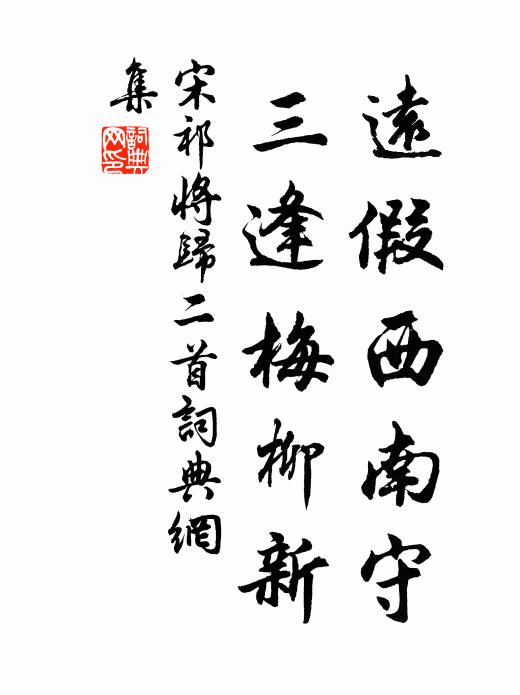 遠假西南守
三逢梅柳新
宋祁將歸二首詞典網
集
詞典
网印